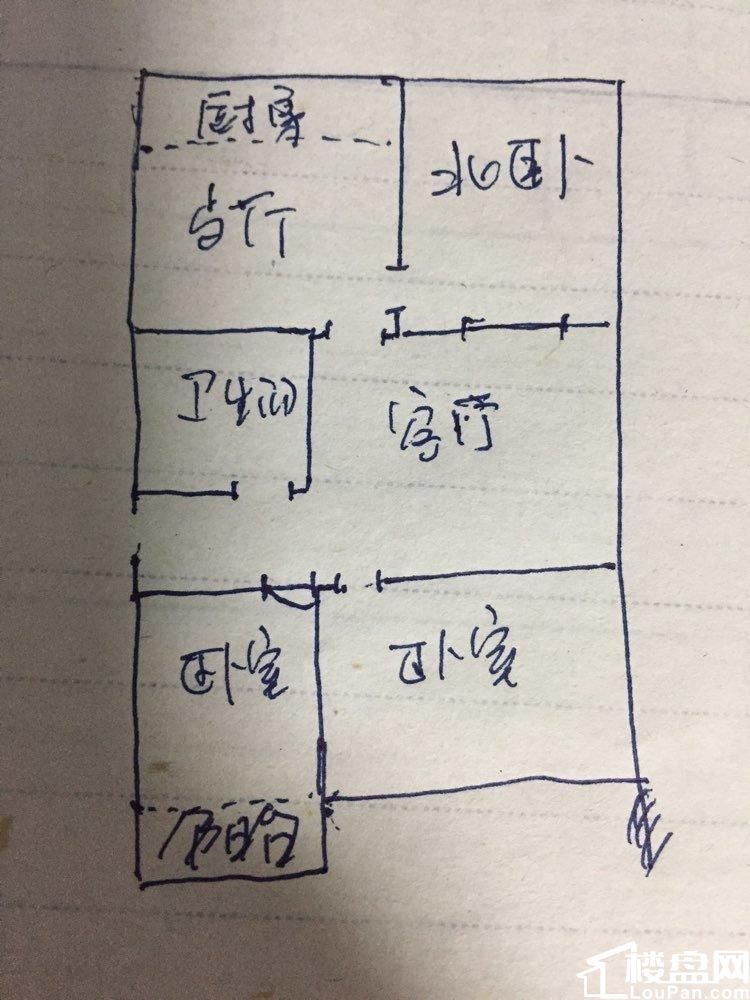 厨房
北卧
方厅
卫生间
客厅
卧室
卧室
阳台
楼盘网
LouPan.com